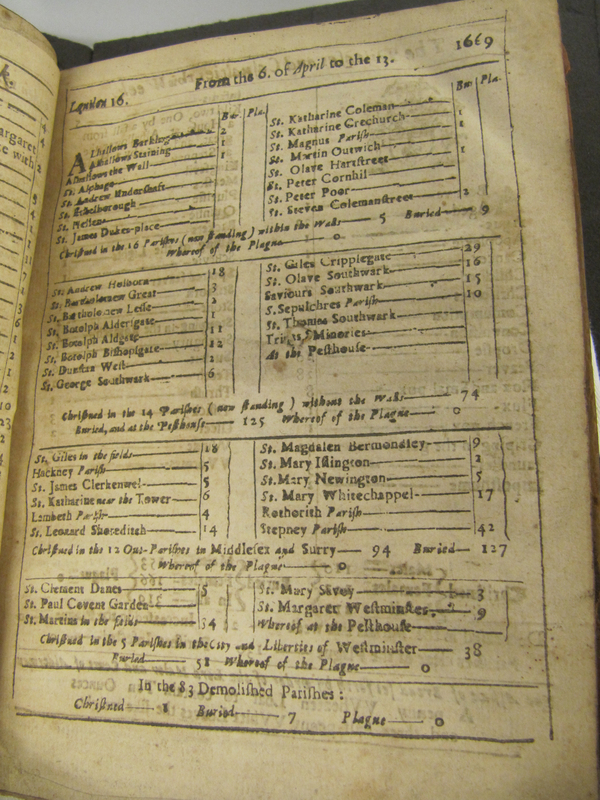 London 16. From the 6. of April to the 13. 1669
Bur. Pla.
Bur. Pla.
Alhallows Barking 2
Alhallows Staining 1
Alhallows the Wall 1
St. Alphage
St. Andrew Undershaft
St. Ethelborough
St. Hellens
St. James Dukes-place
St. Katharine Coleman 1
St. Katharine Creechurch 1
St. Magnus Parish
St. Martin Outwich 1
St. Olave Hartstreet 1
St. Peter Cornhil
St. Peter Poor
St. Steven Colemanstreet 2
Christned in the 16 Parishes (now standing) within the Walls 5 Buried 9
Whereof of the Plague 0
St. Andrew Holborn 18
St. Bartholomew Great 3
St. Bartholomew Lesse 2
St. Botolph Aldersgate
St. Botolph Aldgate 11
St. Botolph Bishopsgate 12
St. Dunstan West 1
St. George Southwark 6
St. Giles Cripplegate 29
St. Olave Southwark 16
Saviours Southwark 15
S. Sepulchres Parish 10
St. Thomas Southwark
Minories
At the Pesthouse
Christned in the 14 Parishes (now standing) without the Walls 74
Buried, and at the Pesthouse 125 Whereof of the Plague 0
St. Giles in the fields 18
Hackney Parish 5
St. James Clerkenwel 5
St. Katharine near the Tower 6
Lambeth Parish 4
St. Leonard Shoreditch 14
St. Magdalen Bermondsey 9
St. Mary Islington 2
St. Mary Newington 5
St. Mary Whitechappel 17
Rothorith Parish
Stepney Parish 42
Christned in the 12 Out-Parishes in Middlesex and Surry 94 Buried 127
Whereof of the Plague 0
St. Clement Danes 5
St. Paul Covent Garden
St. Martins in the fields 34
St. Mary Savoy 3
St. Margaret Westminster 9
Whereof at the Pesthouse
Christned in the 5 Parishes in the City and Liberties of Westminster 38
Buried 51 Whereof of the Plague 0
In the 83 Demolished Parishes:
Christned 1 Buried 7 Plague 0